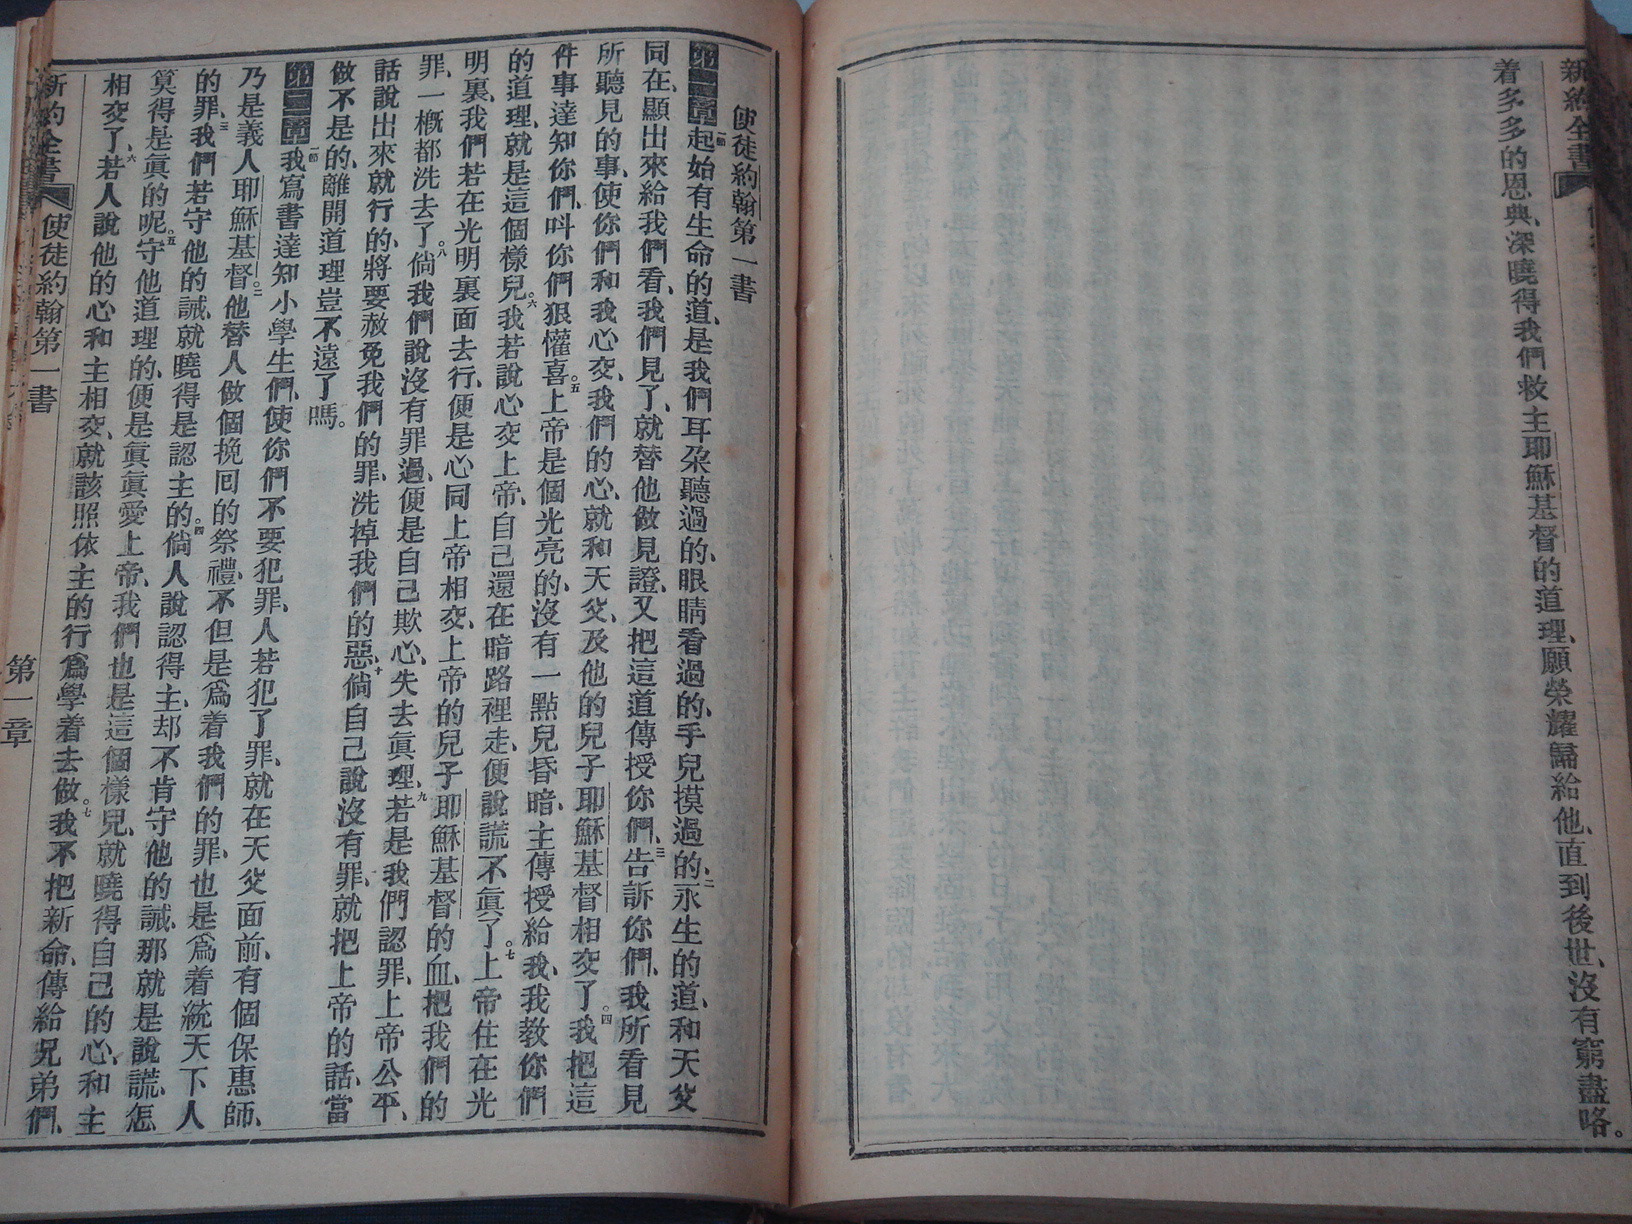 新約全書
着多多的恩典、深曉得我們救主耶穌基督的道理、願榮耀歸給他、直到後世、沒有窮盡咯。
使徒約翰第一書
第一章一節起始有生命的道、是我們耳朶聽過的、眼睛看過的、手兒摸過的、二永生的道、和天父
同在、顯出來給我們看、我們見了、就替他做見證、又把這道傳授你們、三告訴你們、我所看見
所聽見的事、使你們和我心交、我們的心、就和天父、及他的兒子耶穌基督相交了。四我把這
件事達知你們、叫你們狠懽喜。五上帝是個光亮的、沒有一點兒昏暗、主傳授給我、我教你們
的道理、就是這個樣兒。六我若說心交上帝、自己還在暗路裡走、便說謊不眞了。七上帝住在光
明裏、我們若在光明裏面去行、便是心同上帝相交、上帝的兒子耶穌基督的血、把我們的
罪、一槪都洗去了。八倘我們說沒有罪過、便是自己欺心、失去眞理、九若是我們認罪、上帝公平、
話說出來就行的、將要赦免我們的罪、洗掉我們的惡、十倘自己說沒有罪、就把上帝的話、當
做不是的、離開道理豈不遠了嗎。
第二章一節我寫書達知小學生們、使你們不要犯罪、人若犯了罪、就在天父面前、有個保惠師、
乃是義人耶穌基督。二他替人做個挽囘的祭禮、不但是爲着我們的罪、也是爲着統天下人
的罪、三我們若守他的誡、就曉得是認主的、四倘人說認得主、却不肯守他的誡、那就是說謊、怎
算得是眞的呢。五守他道理的、便是眞眞愛上帝、我們也是這個樣兒、就曉得自己的心、和主
相交了、六若人說他的心和主相交、就該照依主的行爲學着去做。七我不把新命、傳給兄弟們、
新約全書 使徒約翰第一書 第一章